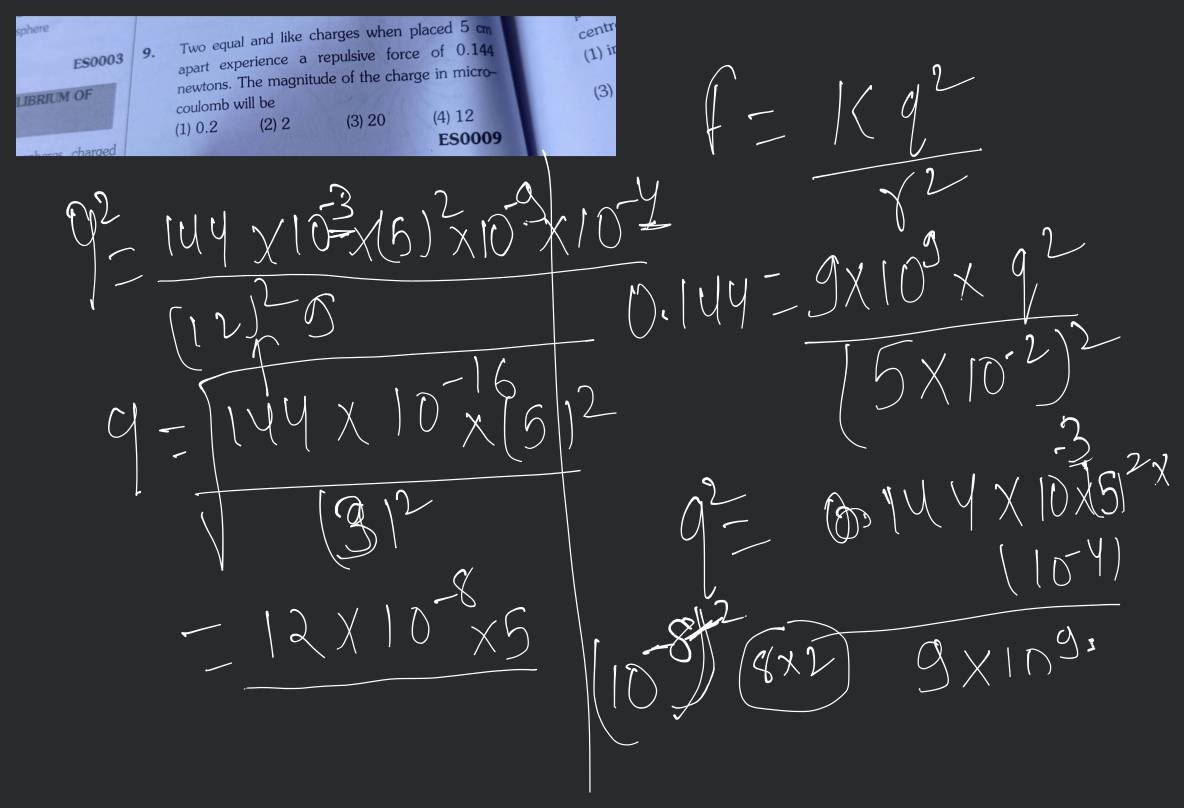 sphere
ES0003
LIBRIUM OF
charged
9. Two equal and like charges when placed 5 cm
apart experience a repulsive force of 0.144
newtons. The magnitude of the charge in micro-
coulomb will be
(1) 0.2 (2) 2 (3) 20 (4) 12
ES0009
centr
(1) ir
(3)
f = K q²
r²
0.144 = 9×10⁹ × q²
(5×10⁻²)²
q² = 0.144×10⁻³×(5)²×
(10⁻⁴)
9×10⁹
(10⁻⁸)² 8×2
q² = 144×10⁻³×(5)²×10⁻⁹×10⁻⁴
(12)² 9
q = √144×10⁻¹⁶×(5)²
(3)²
= 12×10⁻⁸×5